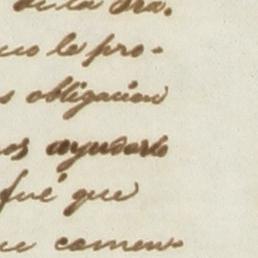 de la Sra.
no le pro-
s obligacion
os ayudarlo
fué que
ue comen-